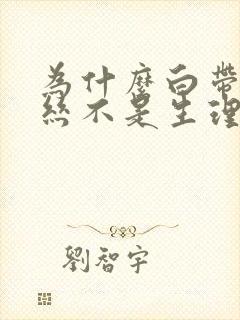 為什麼白帶
絲不是生理
劉智宇